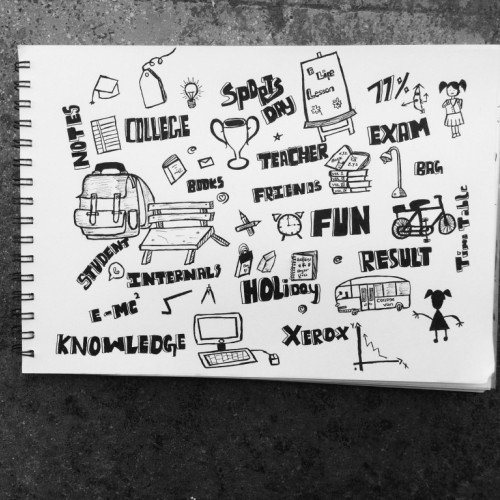 NOTES
COLLEGE
SPORTS
DAY
A Life
Lesson
77%
EXAM
TEACHER
BOOKS
FRIENDS
BAG
FUN
STUDENT
INTERNALS
RESULT
Time Table
HOLiday
E=MC²
KNOWLEDGE
XEROX